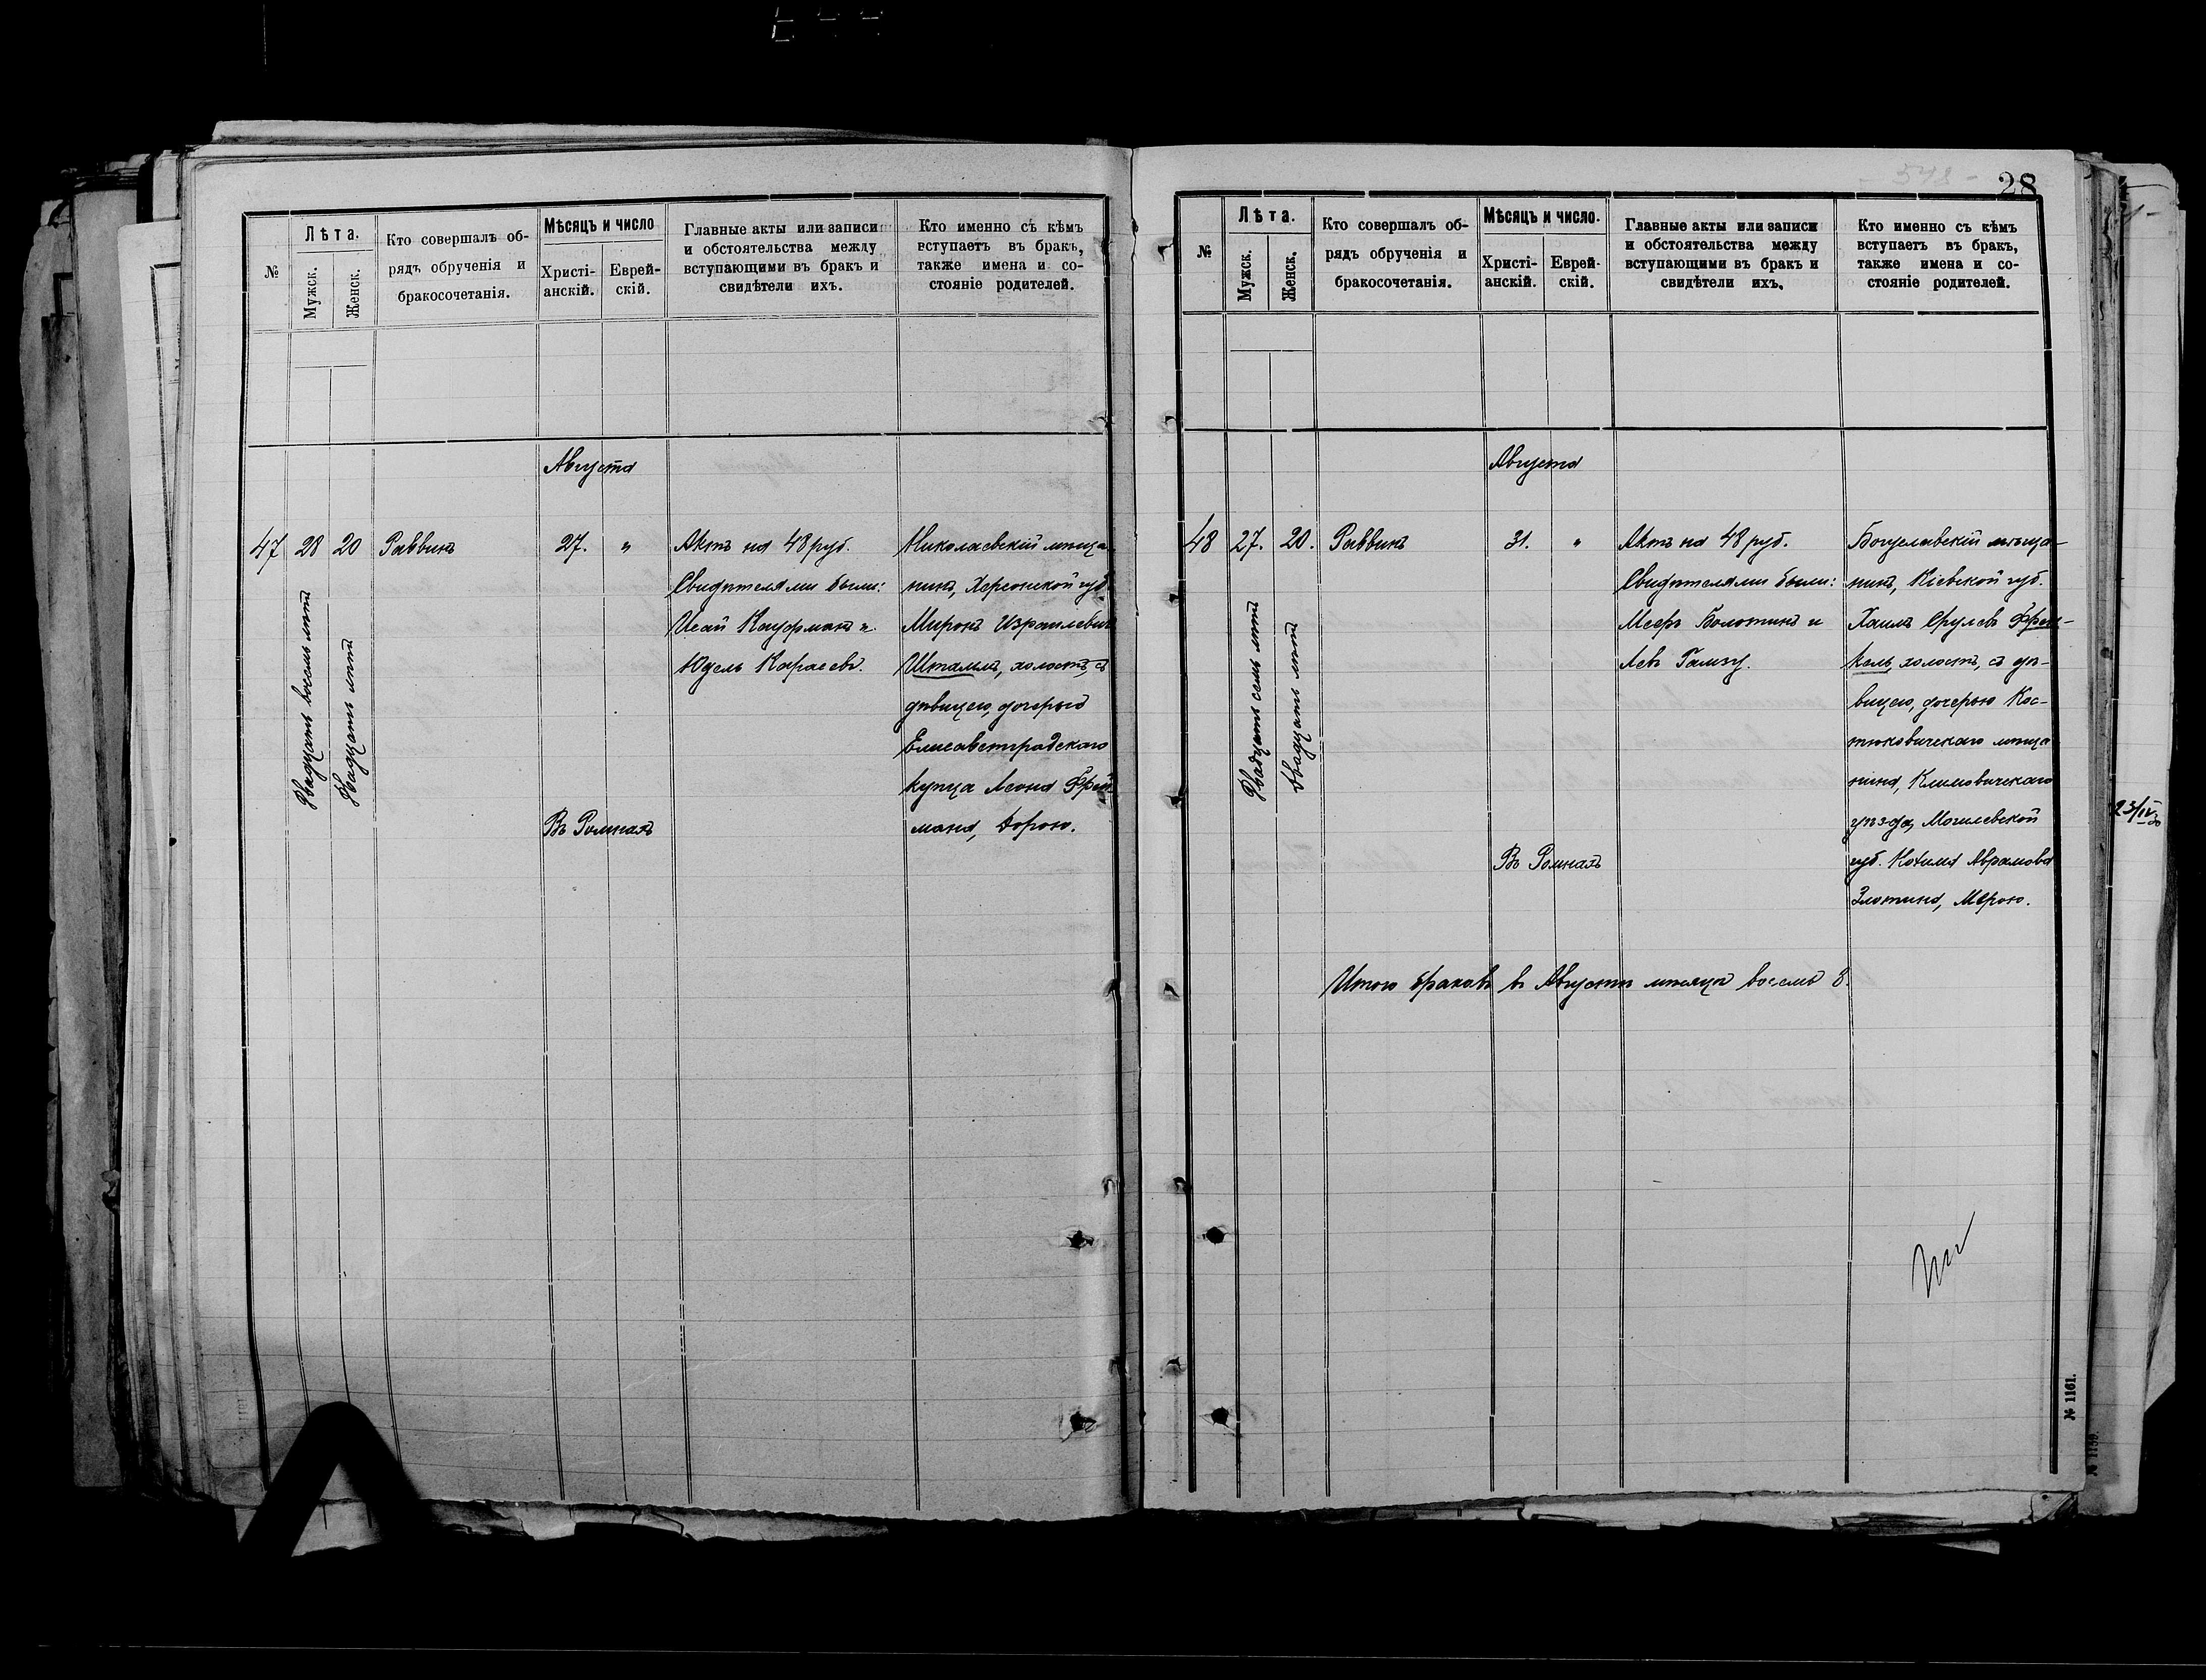 №
Лѣта.
Мужск.
Женск.
Кто совершалъ об-
рядъ обрученія и
бракосочетанія.
Мѣсяцъ и число
Христі-
анскій.
Еврей-
скій.
Главные акты или записи
и обстоятельства между
вступающими въ бракъ и
свидѣтели ихъ.
Кто именно съ кѣмъ
вступаетъ въ бракъ,
также имена и со-
стояніе родителей.
Августа
47 28 20 Раввинъ 27. "
Двадцать восемь лѣтъ
Двадцать лѣтъ
Актъ на 48 руб.
Свидѣтелями были:
Исай Кауфманъ и
Юдель Карасевъ.
Николаевскій мѣща-
нинъ, Херсонской губ.
Миронъ Израилевичъ
Штаммъ, холостъ, съ
дѣвицею, дочерью
Елисаветградскаго
купца Леона Фрей-
мана, Дорою.
Въ Ромнахъ
28
№
Лѣта.
Мужск.
Женск.
Кто совершалъ об-
рядъ обрученія и
бракосочетанія.
Мѣсяцъ и число.
Христі-
анскій.
Еврей-
скій.
Главные акты или записи
и обстоятельства между
вступающими въ бракъ и
свидѣтели ихъ.
Кто именно съ кѣмъ
вступаетъ въ бракъ,
также имена и со-
стояніе родителей.
Августа
48 27. 20. Раввинъ 31. "
Двадцать семь лѣтъ
Двадцать лѣтъ
Актъ на 48 руб.
Свидѣтелями были:
Мееръ Болотинъ и
Левъ Гамзу.
Богуславскій мѣща-
нинъ, Кіевской губ.
Хаимъ Срулевъ Френ-
кель, холостъ, съ дѣ-
вицею, дочерью Кос-
тюковичскаго мѣща-
нина, Климовичскаго
уѣзда, Могилевской
губ. Авраамова
Злотина, Мерою.
Въ Ромнахъ
Итого браковъ въ Августѣ мѣсяцѣ восемь 8.
№ 1161.
№ 1159.